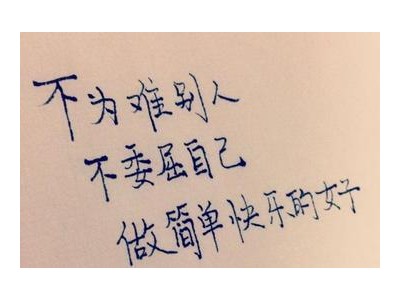 不为难别人
不委屈自己
做简单快乐的女子